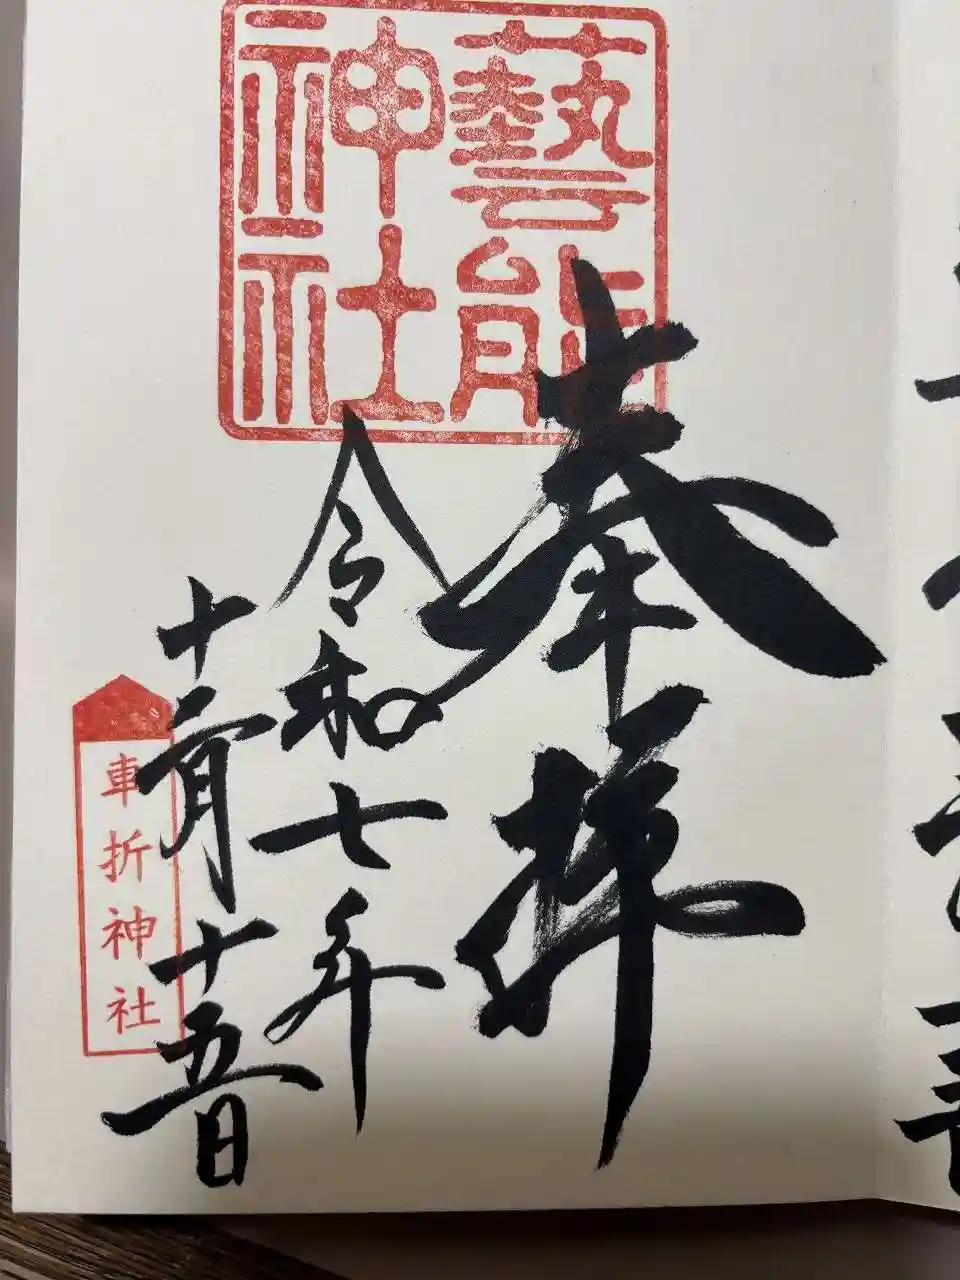 藝能
神社
奉拝
令和七年
十二月十五日
車折神社